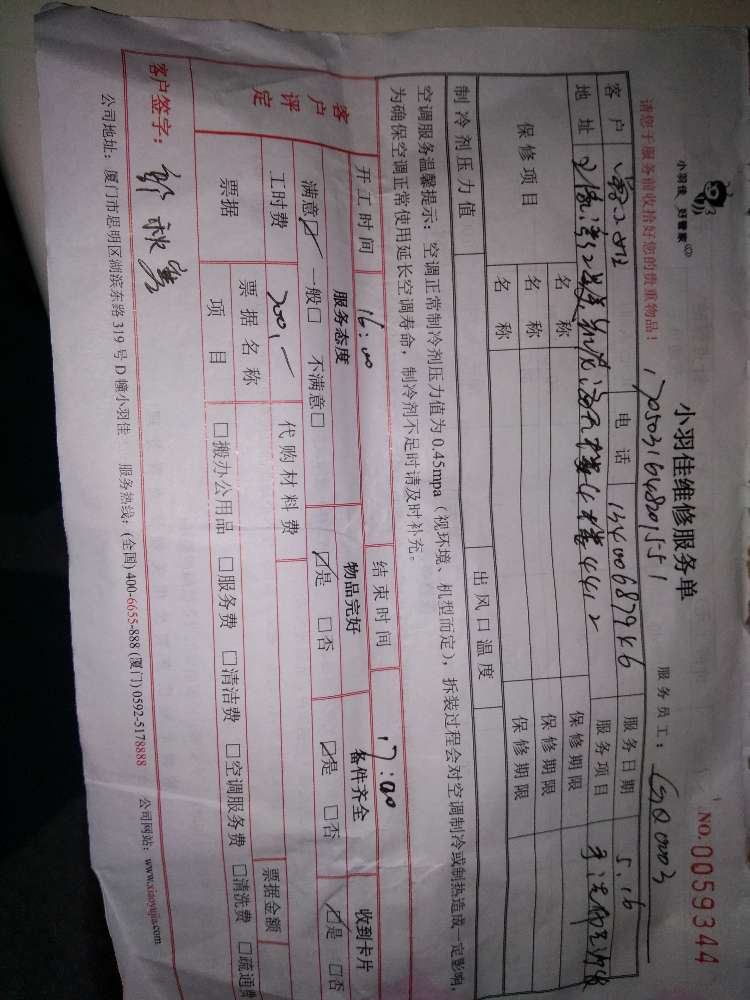 小羽佳 好管家
小羽佳维修服务单
NO.0059344
请您于服务前收拾好您的贵重物品！
服务员工：
客户
电话 13400687946
服务日期 5.16
地址
服务项目
保修项目
名称
保修期限
名称
保修期限
名称
保修期限
制冷剂压力值
出风口温度
空调服务温馨提示：空调正常制冷剂压力值为0.45mpa（视环境、机型而定），拆装过程会对空调制冷或制热造成一定影响，
为确保空调正常使用延长空调寿命，制冷剂不足时请及时补充。
开工时间 16:00
结束时间 17:00
客户评定
服务态度
物品完好
备件齐全
收到卡片
满意☑ 一般□ 不满意□
☑是 □否
☑是 □否
☑是 □否
工时费 200,—
代购材料费
票据
票据名称
票据金额
项目
□搬办公用品 □服务费 □清洁费 □空调服务费 □清洗费 □疏通费
客户签字：
公司地址：厦门市思明区湖滨东路319号D幢小羽佳 服务热线：(全国)400-6655-888 (厦门)0592-5178888 公司网站：www.xiaoyujia.com